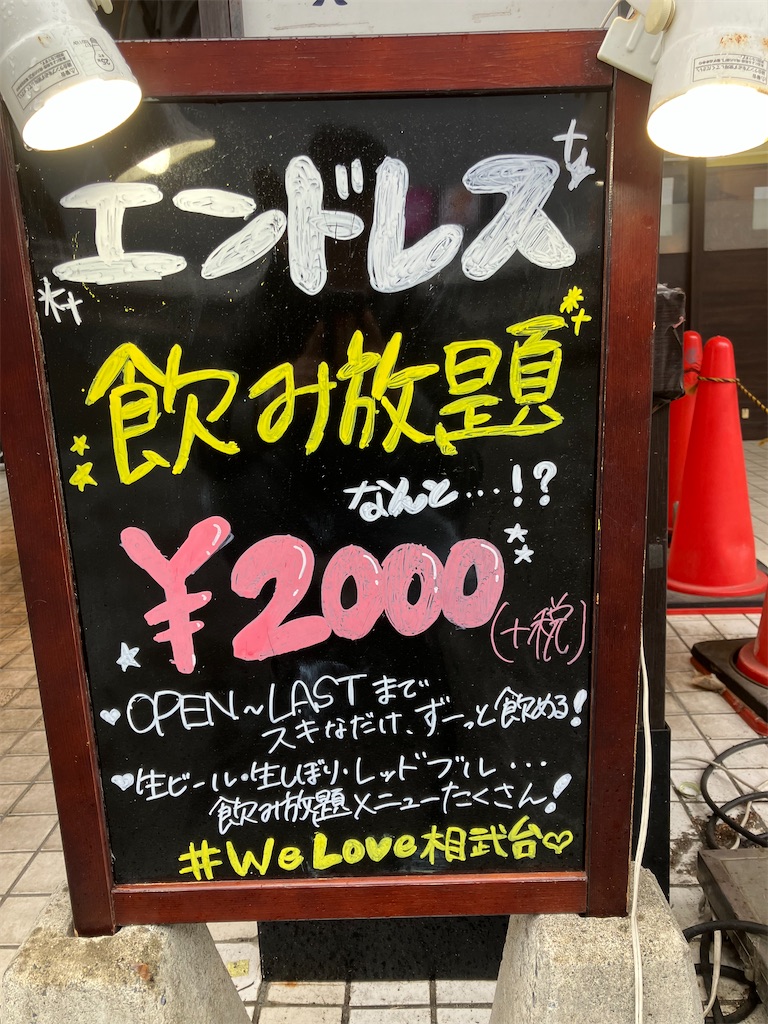 エンドレス
飲み放題
なんと…!?
¥2000
(+税)
OPEN~LASTまで
スキなだけ、ずーっと飲める!
生ビール・生しぼり・レッドブル・・・
飲み放題メニューたくさん!
#WeLove相武台♡